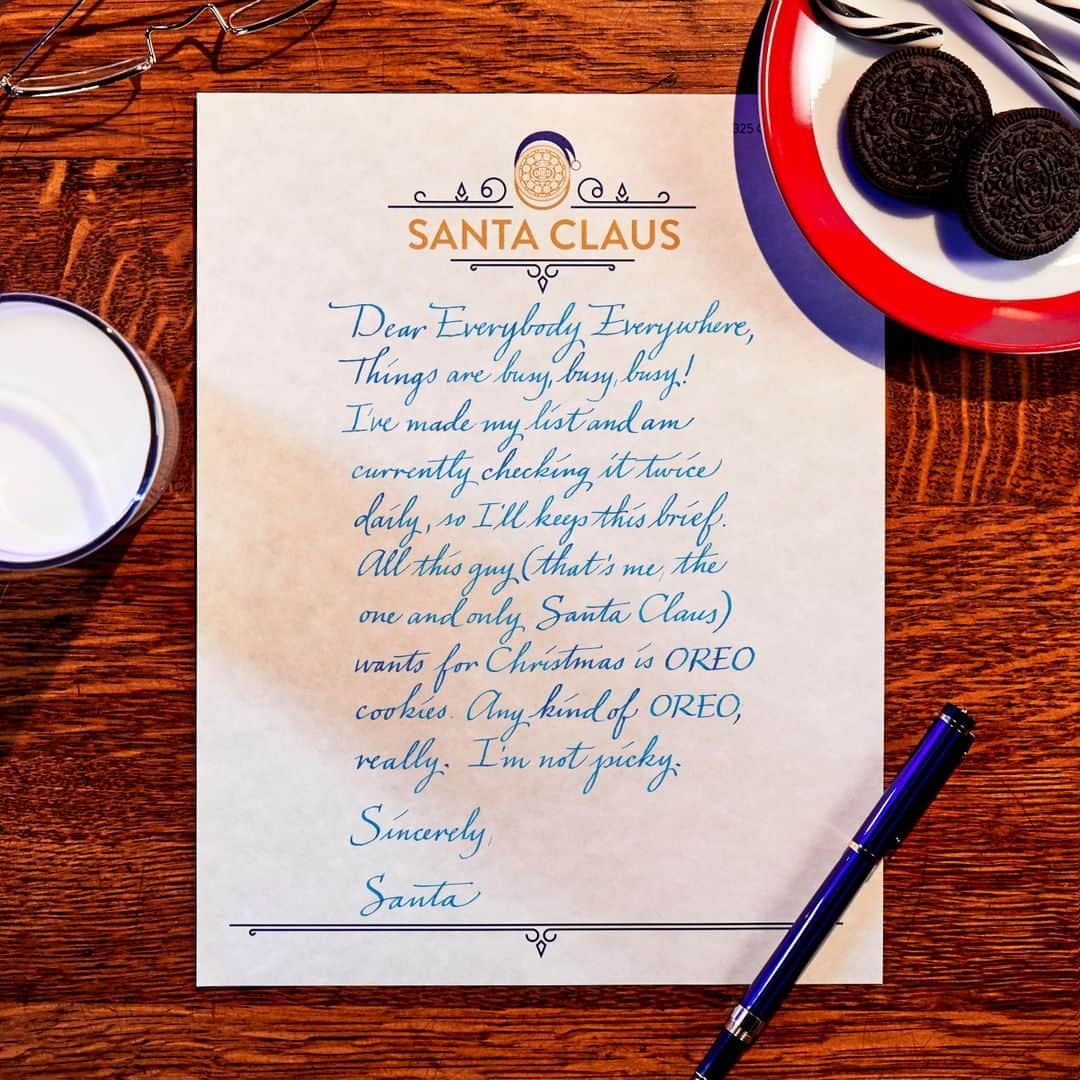 325
SANTA CLAUS
Dear Everybody Everywhere,
Things are busy, busy, busy!
I've made my list and am
currently checking it twice
daily, so I'll keep this brief.
All this guy (that's me, the
one and only Santa Claus)
wants for Christmas is OREO
cookies. Any kind of OREO,
really. I'm not picky.
Sincerely,
Santa